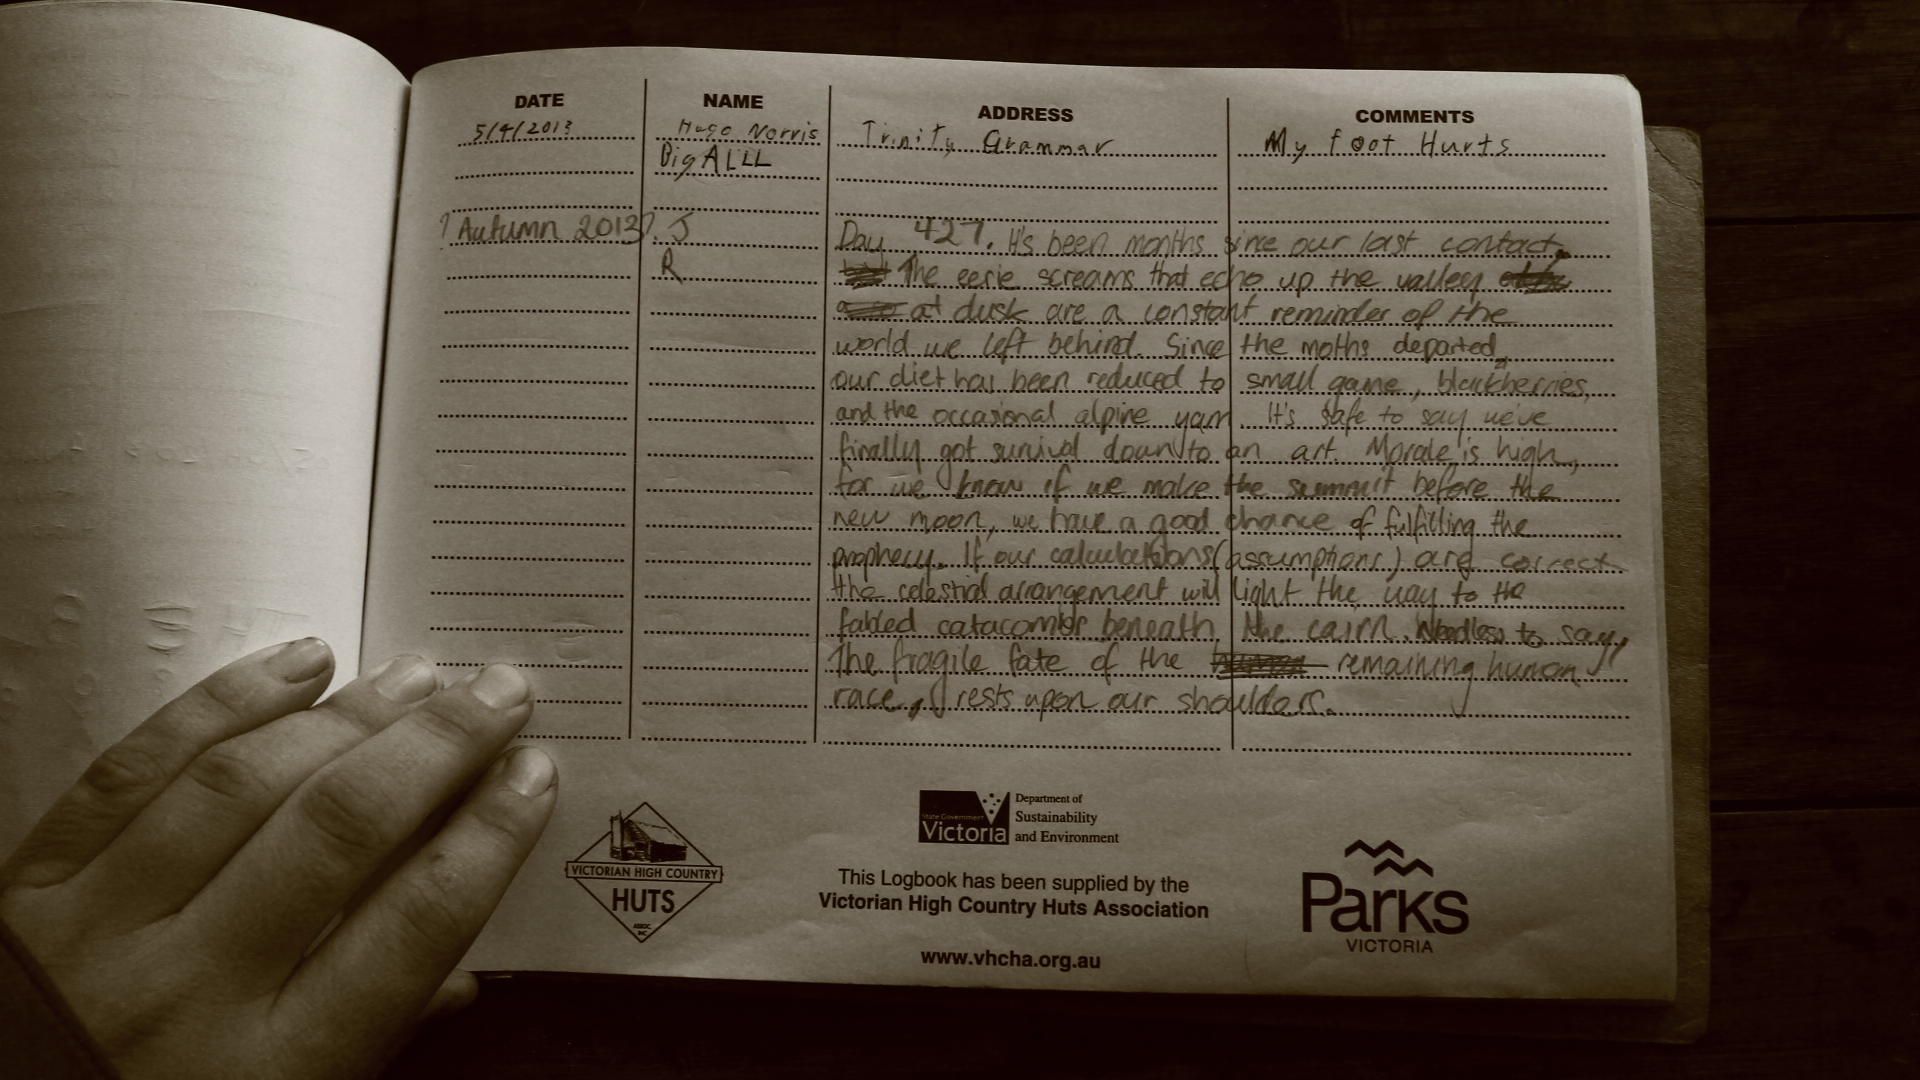 DATE NAME ADDRESS COMMENTS
5/4/2013 Hugo Norris Trinity Grammar My foot Hurts
Big ALLL
? Autumn 2013? J Day 427. It's been months since our last contact.
R The eerie screams that echo up the valley
at dusk are a constant reminder of the
world we left behind. Since the moths departed,
our diet has been reduced to small game, blackberries,
and the occasional alpine yam. It's safe to say we've
finally got survival down to an art. Morale is high,
for we know if we make the summit before the
new moon, we have a good chance of fulfilling the
prophecy. If our calculations (assumptions) are correct
the celestial arrangement will light the way to the
fabled catacombs beneath the cairn. Needless to say,
The fragile fate of the remaining human
race, rests upon our shoulders.
VICTORIAN HIGH COUNTRY
HUTS
ASSOC.
INC
State Government
Victoria
Department of
Sustainability
and Environment
This Logbook has been supplied by the
Victorian High Country Huts Association
www.vhcha.org.au
Parks
VICTORIA